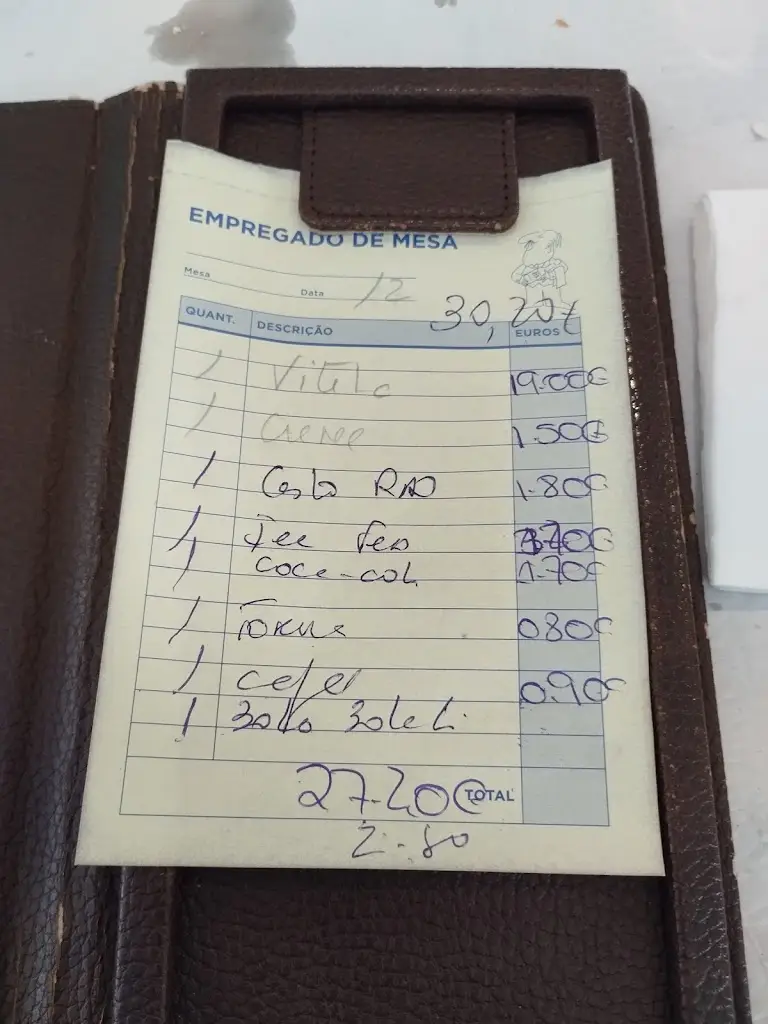 EMPREGADO DE MESA
Mesa
Data 12
30,20€
QUANT. DESCRIÇÃO EUROS
1 Vitela 19.00€
1 Creme 1.50€
1 Cesto 1.80€
1
1 Coca-col 1.70€
1 0.80€
1 cafe 0.90€
1 Bolo Bolach
27.20€ TOTAL
2.80